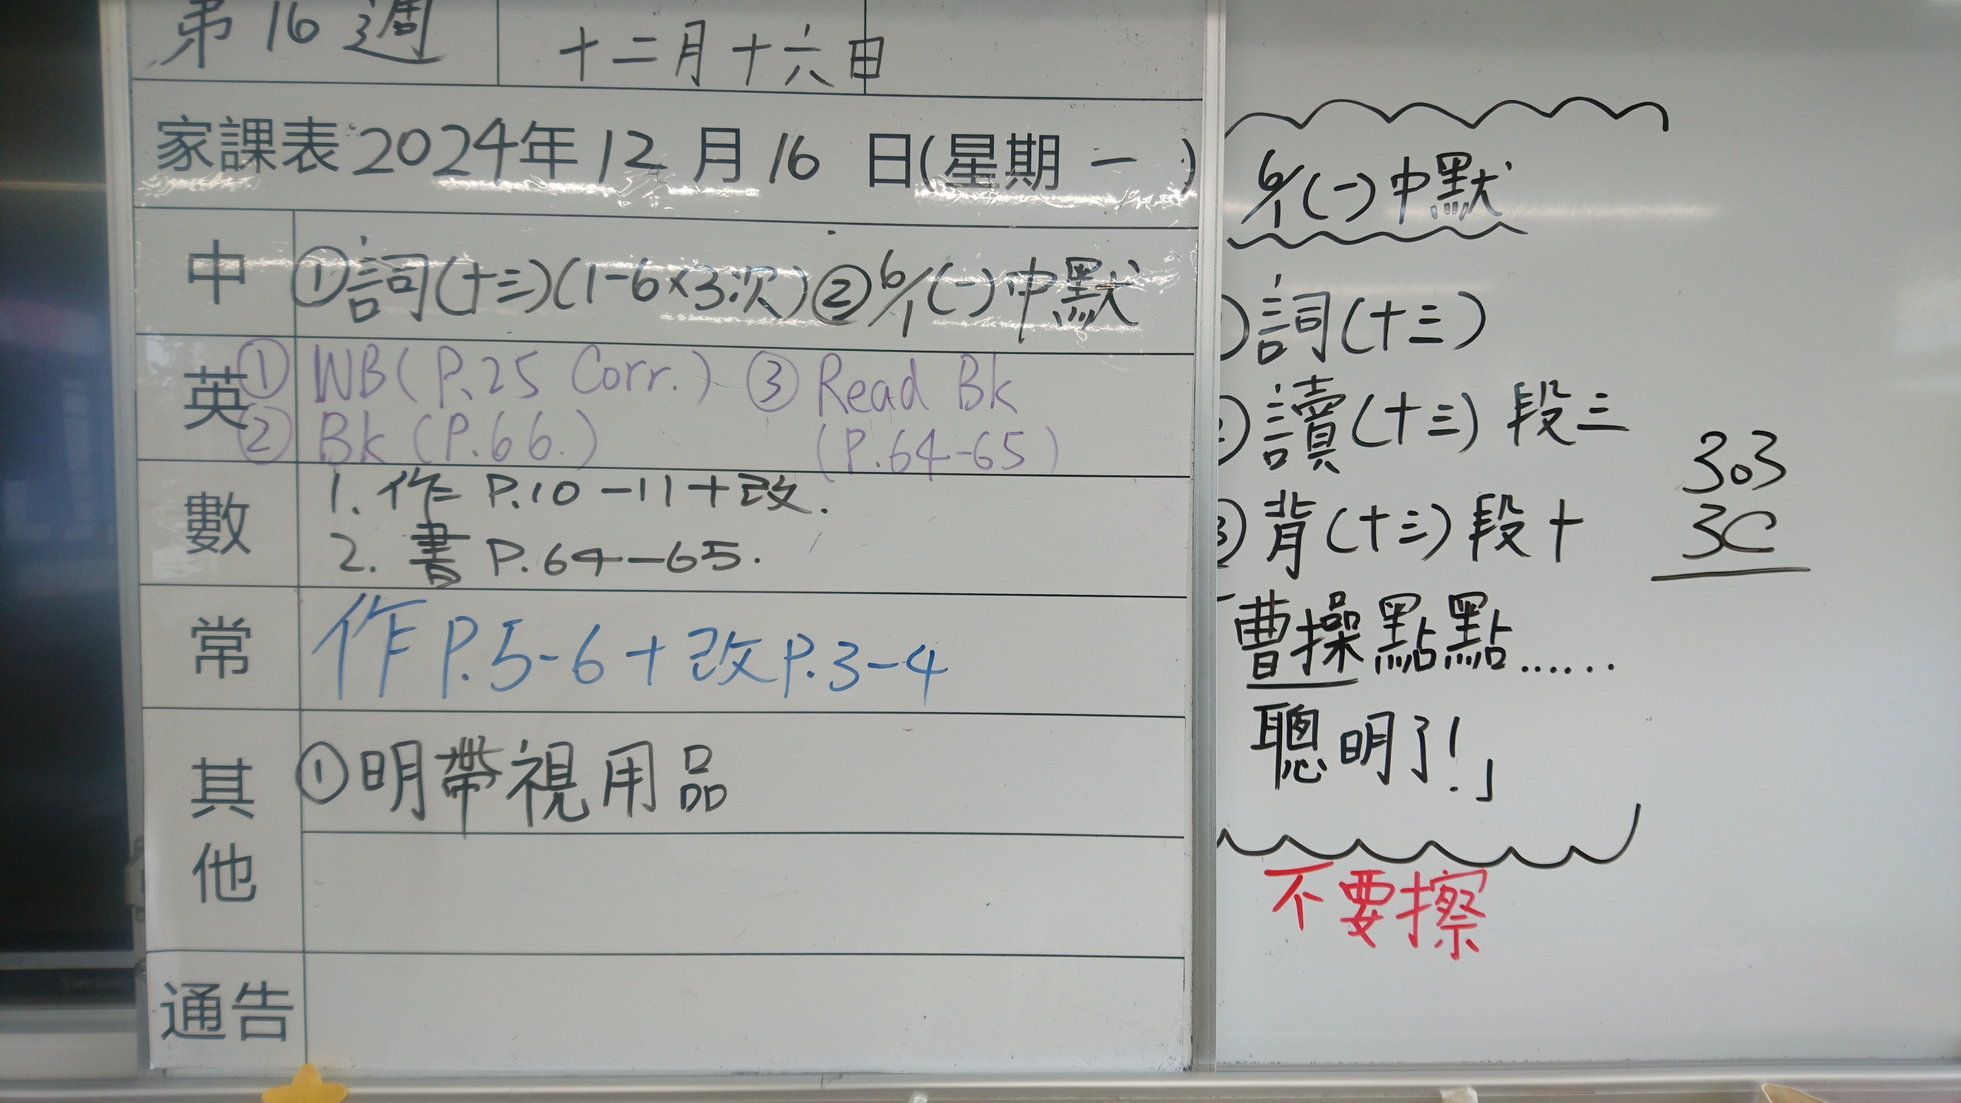 第16週 十二月十六日
家課表2024年12月16日(星期一)
中 ①詞(十三)(1-6×3次)②6/1(一)中默
英 ① WB(P.25 Corr.) ③ Read Bk
② Bk (P.66.) (P.64-65)
數 1. 作 P.10-11+改.
2. 書 P.64-65.
常 作P.5-6+改P.3-4
其他 ①明帶視用品
通告
6/1(一)中默
)詞(十三)
②讀(十三)段三
③背(十三)段十
曹操點點……
聰明了!」
303
30
不要擦